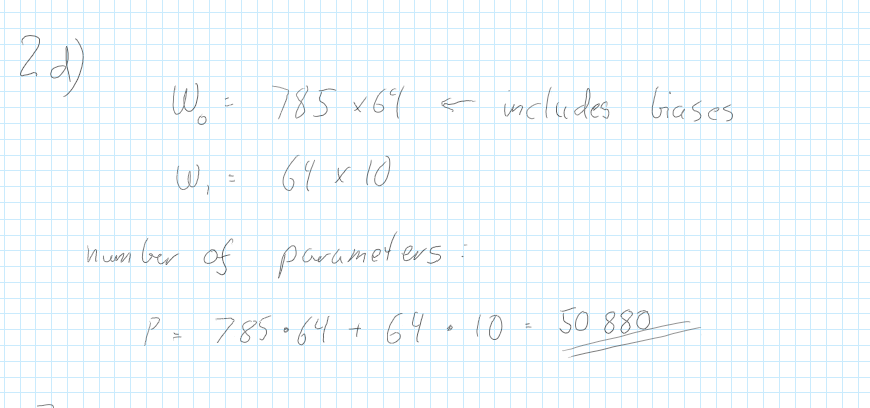 2d)
W₀ = 785 x 64 ← includes biases
W₁ = 64 x 10
number of parameters:
P = 785 • 64 + 64 • 10 = 50 880